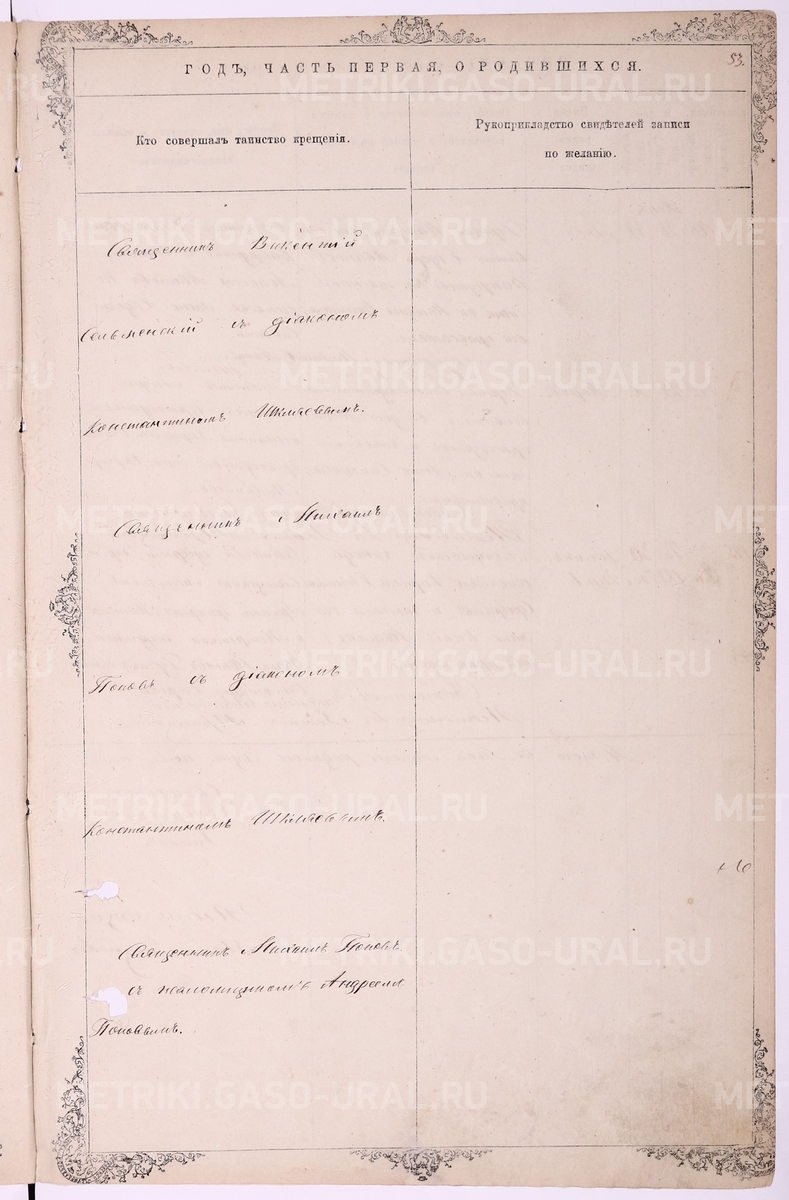 53.
ГОДЪ, ЧАСТЬ ПЕРВАЯ, О РОДИВШИХСЯ.
Кто совершалъ таинство крещенія.
Рукоприкладство свидѣтелей записи
по желанію.
Священникъ Викентій
съ діакономъ
Константиномъ
Священникъ Михаилъ
Поповъ съ діакономъ
Константиномъ
Священникъ Михаилъ Поповъ
съ псаломщикомъ Андреемъ
Поповымъ.
METRIKI.GASO-URAL.RU